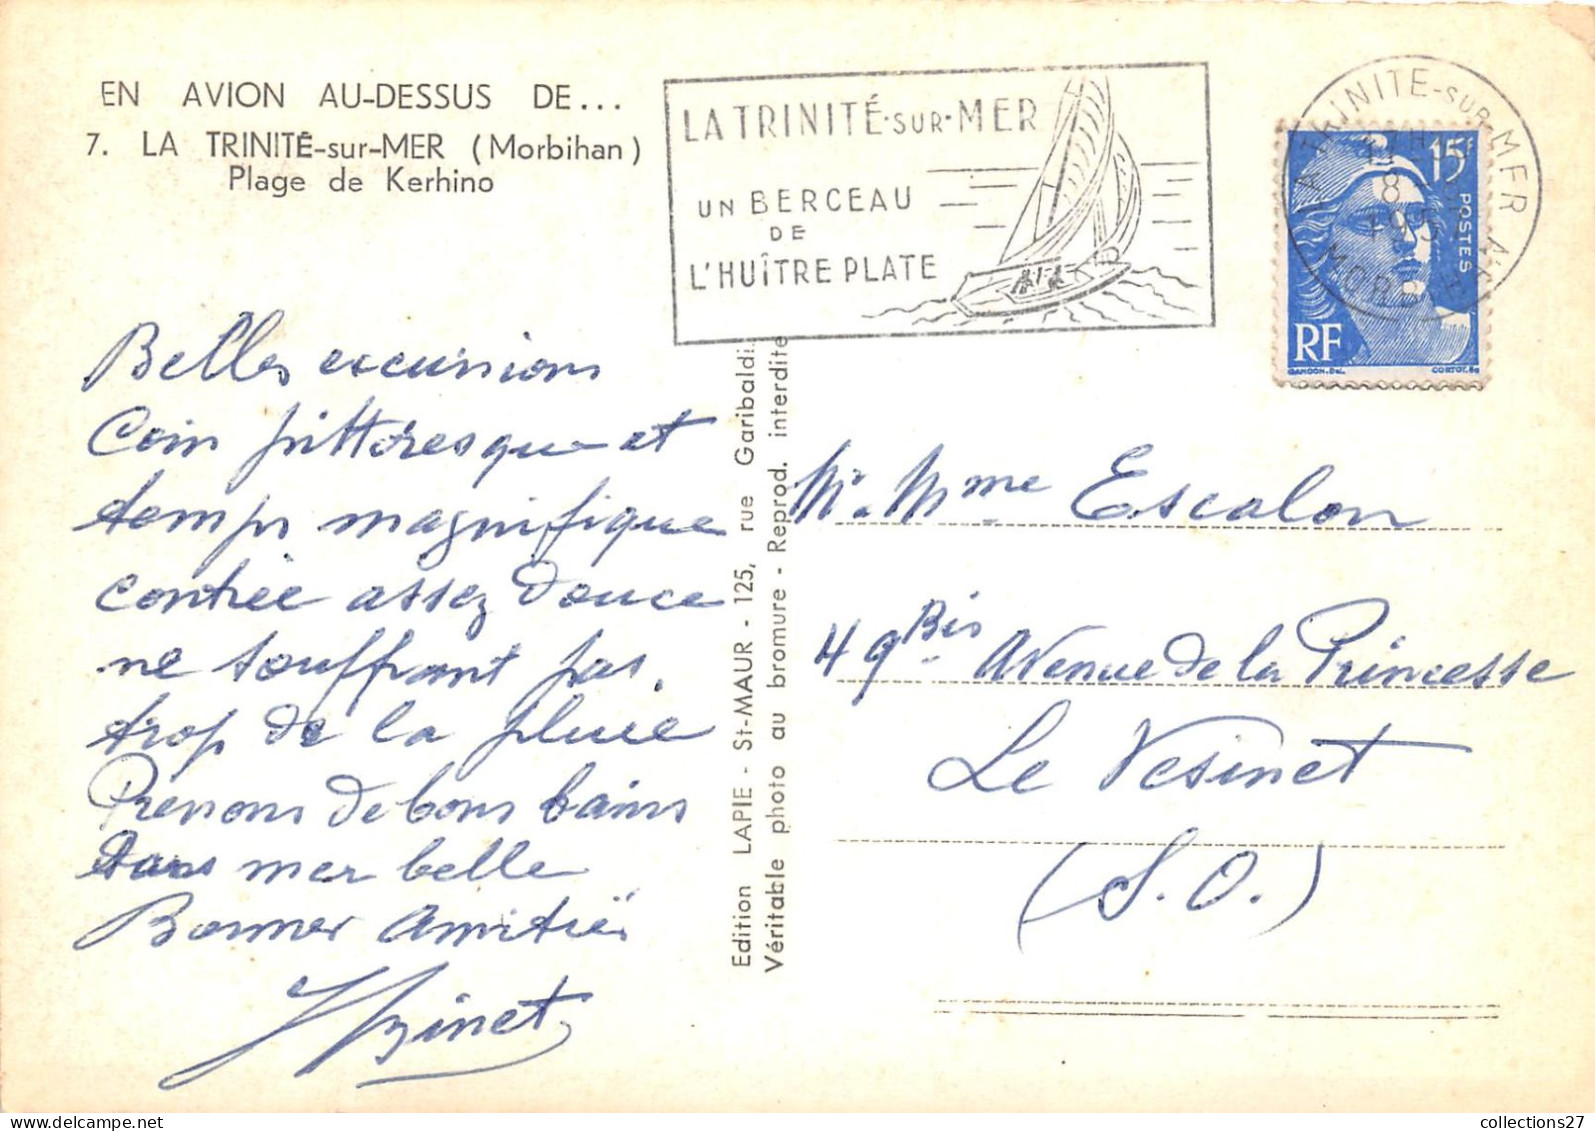 EN AVION AU-DESSUS DE...
7. LA TRINITÉ-sur-MER (Morbihan)
Plage de Kerhino
LA TRINITÉ-SUR-MER
UN BERCEAU
DE
L'HUÎTRE PLATE
LA TRINITE-SUR-MER
17H
8
195
MORBIHAN
15F
POSTES
RF
GANDON.Del.
CORTOT.Sc
Belles excursions
Coin pittoresque et
temps magnifique
contrée assez douce
ne souffrant pas
trop de la pluie
Prenons de bons bains
dans mer belle
Bonnes Amitiés
Edition LAPIE - St-MAUR - 125, rue Garibaldi.
Véritable photo au bromure - Reprod. interdite
Mr. Mme Escalon
49 Bis Avenue de la Princesse
Le Vesinet
(S.O.)
collections27